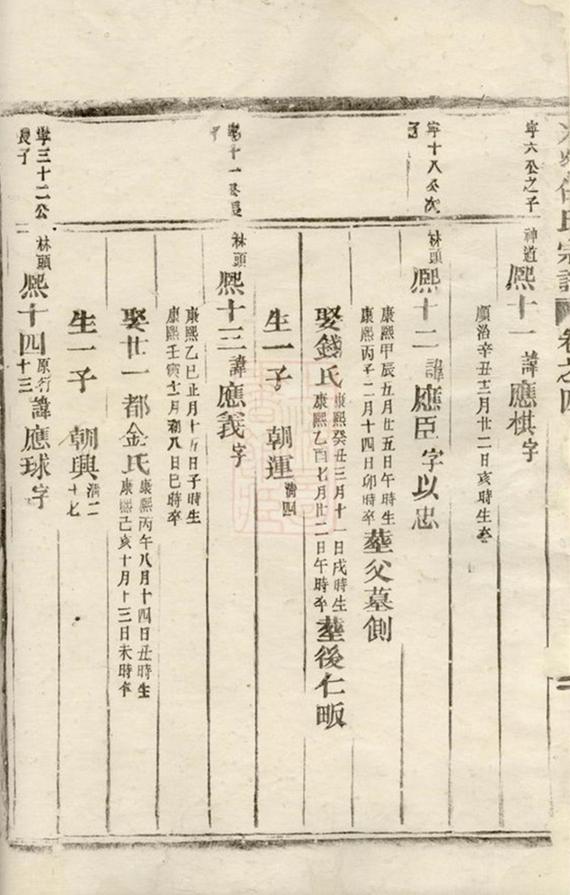 氏宗譜 卷之四
寧六公之子
神道 熈十一 諱應棋字
順治辛丑十二月廿二日亥時生卒
寧十八公次
林頭 熈十二 諱應臣字以忠
康熙甲辰五月廿五日午時生
康熙丙子二月十四日卯時卒
塟父墓側
娶錢氏
康熙癸丑三月十一日戌時生
康熙乙酉七月廿二日午時卒
塟後仁畈
生一子 朝運 清四
林頭 熈十三 諱應義字
康熙乙巳正月十五日子時生
康熙壬寅十二月初八日巳時卒
娶廿一都金氏
康熙丙午八月十四日丑時生
康熙己亥十月十三日未時卒
生一子 朝興 清二十七
寧三十二公
長子
林頭 熈十四 原行十三 諱應球字